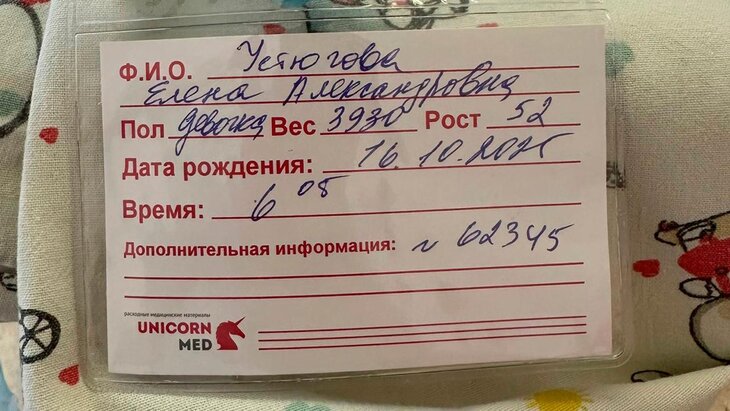 Ф.И.О. Устюгова
Елена Александровна
Пол девочка Вес 3930 Рост 52
Дата рождения: 16.10.2025
Время: 6 05
Дополнительная информация: № 62345
расходные медицинские материалы
UNICORN
MED